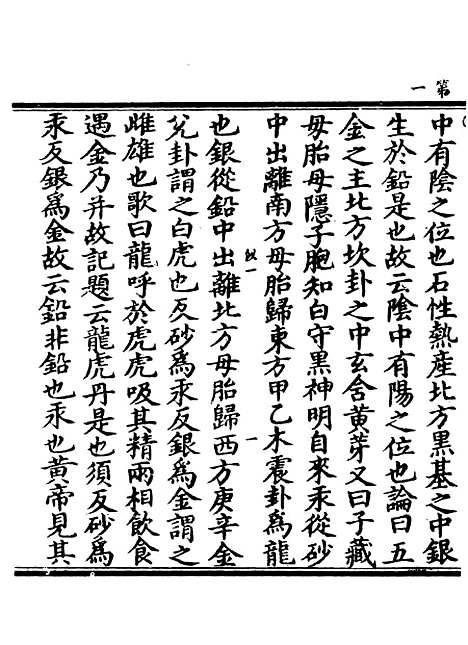 第一
中有陰之位也石性熱產北方黑基之中銀
生於鉛是也故云陰中有陽之位也論曰五
金之主北方坎卦之中玄含黃芽又曰子藏
母胎母隱子胞知白守黑神明自來汞從砂
中出離南方母胎歸東方甲乙木震卦為龍
也銀從鉛中出離北方母胎歸西方庚辛金
兊卦謂之白虎也反砂為汞反銀為金謂之
雌雄也歌曰龍呼於虎虎吸其精兩相飲食
遇金乃并故記題云龍虎丹是也須反砂為
汞反銀為金故云鉛非鉛也汞也黃帝見其